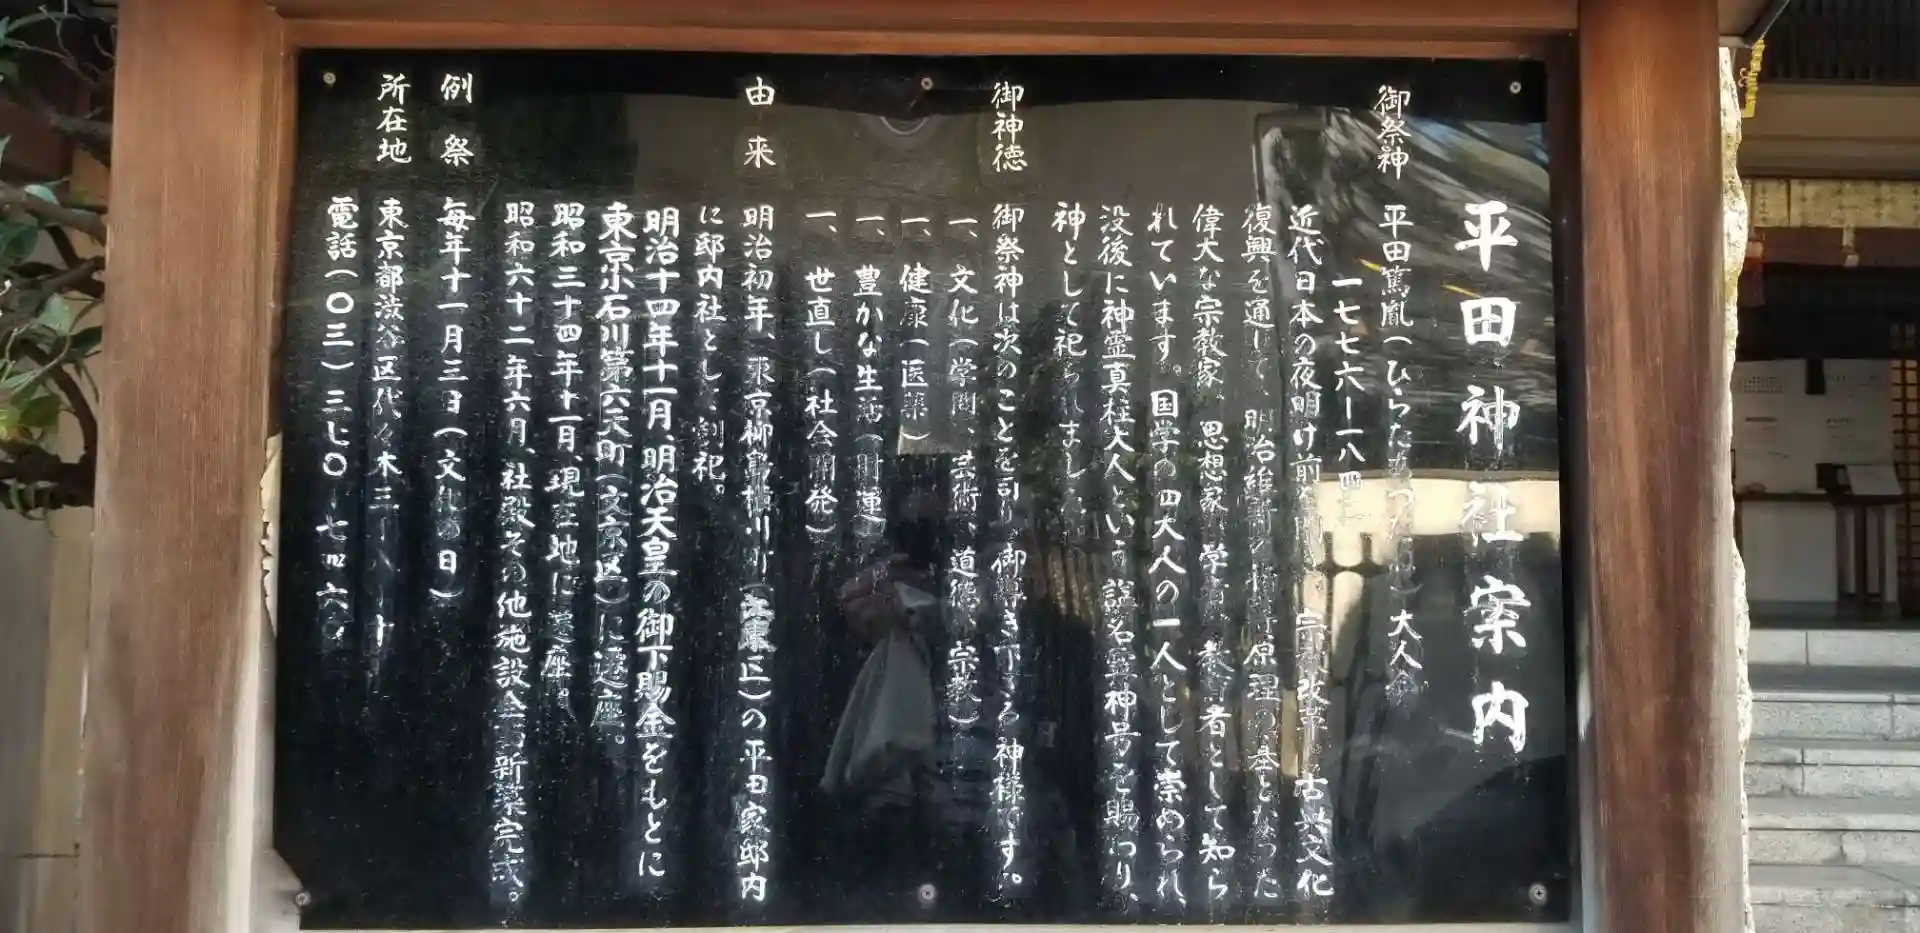 平田神社案内
御祭神 平田篤胤(ひらたあつたね)大人命
一七七六ー一八四三
近代日本の夜明け前を開い 宗教改革 古典文化
復興を通して、明治維新の指導原理の基となった
偉大な宗教家、思想家、学者、教育者として知ら
れています。国学の四大人の一人として崇められ、
没後に神霊真柱大人という諡名霊神号を賜わり、
神として祀られました。
御神徳 御祭神は次のことを司り、御導き下さる神様です。
一、文化(学問、芸術、道徳、宗教)
一、健康(医薬)
一、豊かな生活(財運)
一、世直し(社会開発)
由来 明治初年、東京柳島横川町(江東区)の平田家邸内
に邸内社として創祀。
明治十四年十一月、明治天皇の御下賜金をもとに
東京小石川第六天町(文京区)に遷座。
昭和三十四年十一月、現在地に遷座。
昭和六十二年六月、社殿その他施設全部新築完成。
例祭 毎年十一月三日(文化の日)
所在地 東京都渋谷区代々木三
電話(〇三)三七〇 七四六〇